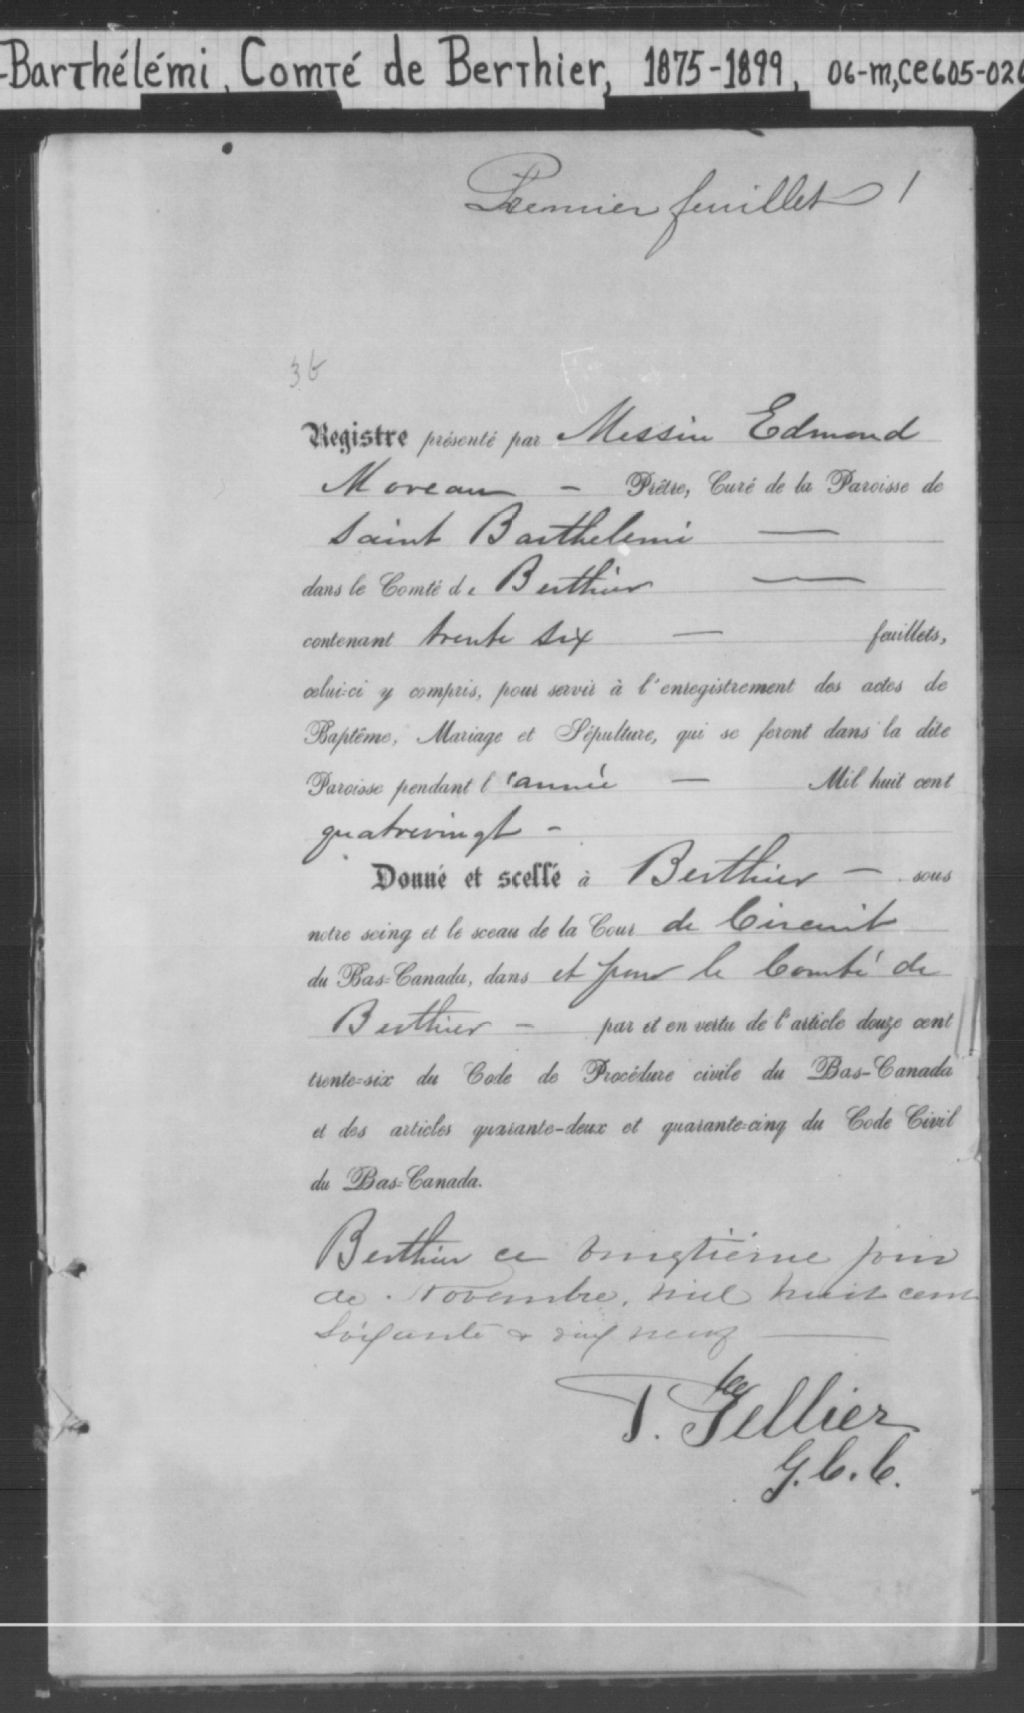 -Barthélémi, Comté de Berthier, 1875-1899, 06-m,CE605-026
Premier feuillet 1
36
Registre présenté par Messire Edmond
Moreau - Prêtre, Curé de la Paroisse de
Saint Barthelemi —
dans le Comté de Berthier —
contenant trente six — feuillets,
celui-ci y compris, pour servir à l'enregistrement des actes de
Baptême, Mariage et Sépulture, qui se feront dans la dite
Paroisse pendant l'année — Mil huit cent
quatrevingt -
Donné et scellé à Berthier — sous
notre seing et le sceau de la Cour de Circuit
du Bas-Canada, dans et pour le Comté de
Berthier - par et en vertu de l'article douze cent
trente-six du Code de Procédure civile du Bas-Canada
et des articles quarante-deux et quarante-cinq du Code Civil
du Bas-Canada.
Berthier ce vingtième jour
de Novembre, mil huit cent
soixante & dix neuf —
Tellier
G.C.C.